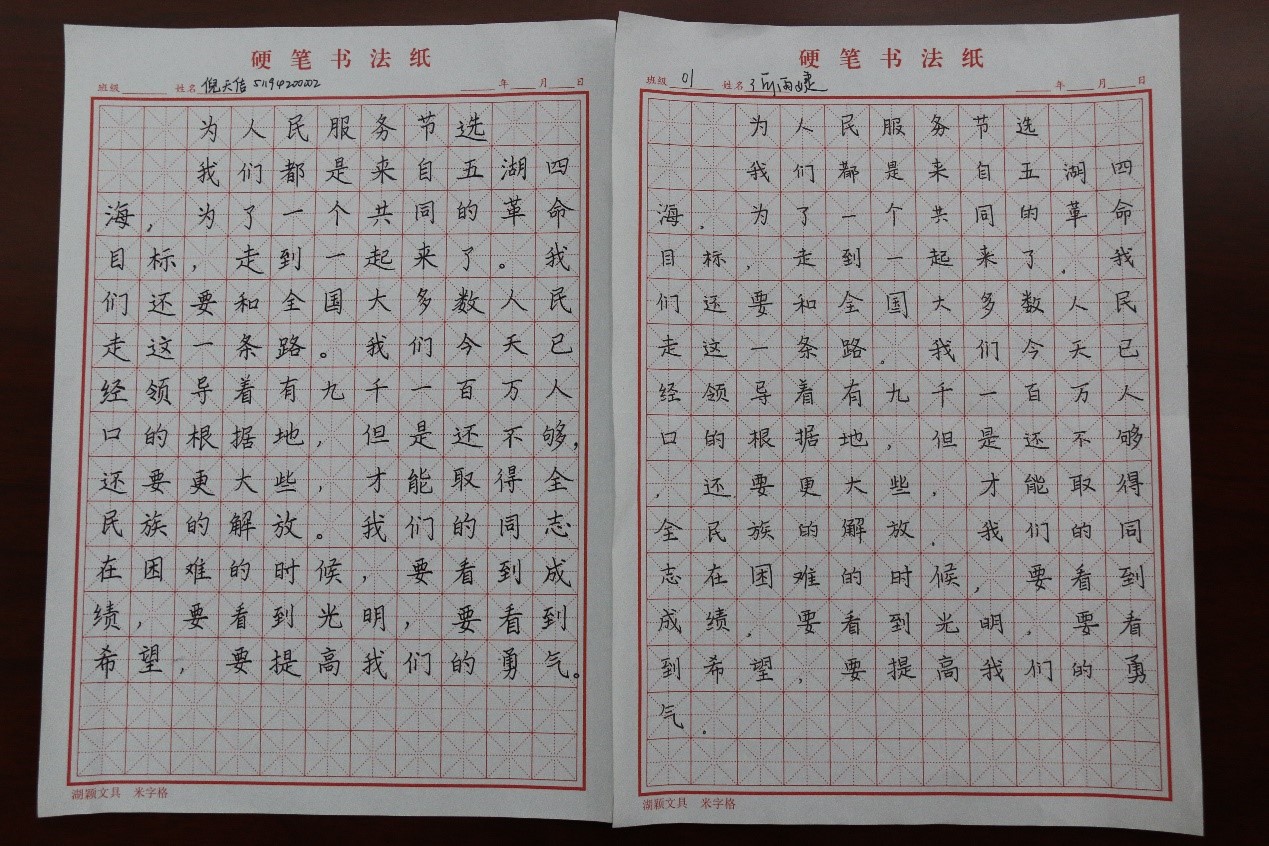 硬笔书法纸
班级 姓名 倪天信 51194200002 年 月 日
为人民服务节选
我们都是来自五湖四
海，为了一个共同的革命
目标，走到一起来了。我
们还要和全国大多数人民
走这一条路。我们今天已
经领导着有九千一百万人
口的根据地，但是还不够，
还要更大些，才能取得全
民族的解放。我们的同志
在困难的时候，要看到成
绩，要看到光明，要看到
希望，要提高我们的勇气。
湖颖文具 米字格
硬笔书法纸
班级 01 姓名 雨婕 年 月 日
为人民服务节选
我们都是来自五湖四
海，为了一个共同的革命
目标，走到一起来了．我
们还要和全国大多数人民
走这一条路。我们今天已
经领导着有九千一百万人
口的根据地，但是还不够
，还要更大些，才能取得
全民族的解放．我们的同
志在困难的时候，要看到
成绩，要看到光明，要看
到希望，要提高我们的勇
气．
湖颖文具 米字格